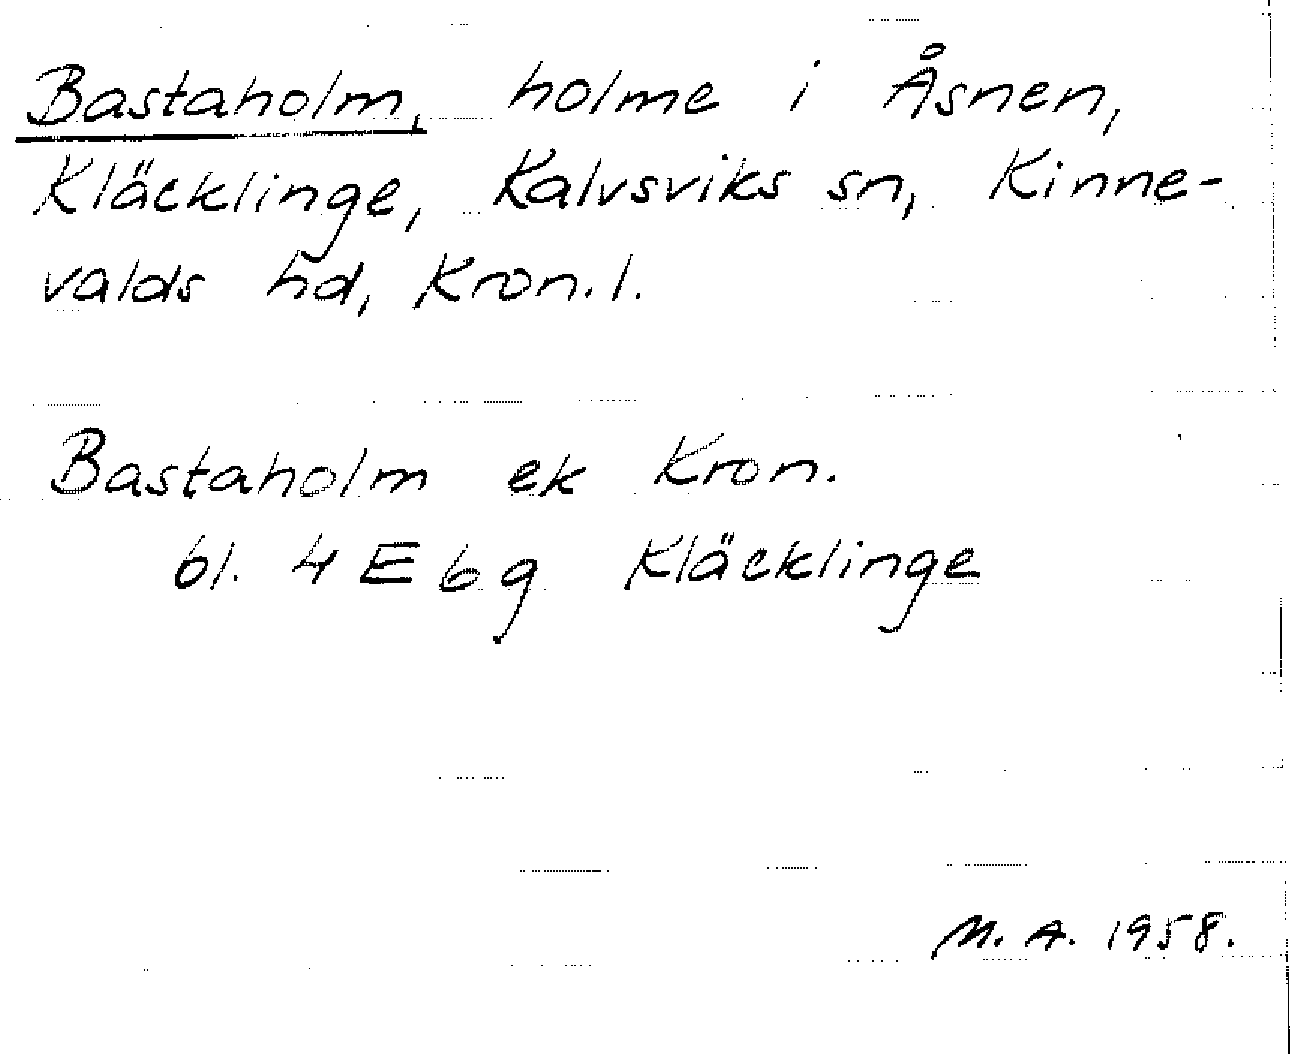 Bastaholm, holme i Åsnen,
Kläcklinge, Kalvsviks sn, Kinne-
valds hd, Kron.l.
Bastaholm ek Kron.
bl. 4 E b g Kläcklinge
M. A. 1958.